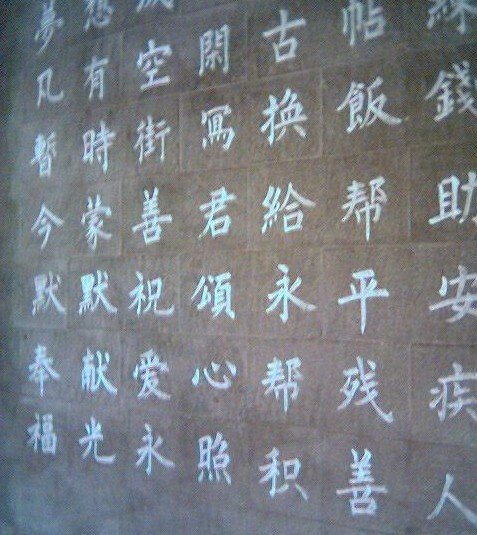 夢想成
凡有空閑古帖練
暫時街寫换飯錢
今蒙善君給帮助
默默祝頌永平安
奉献爱心帮残疾
福光永照积善人